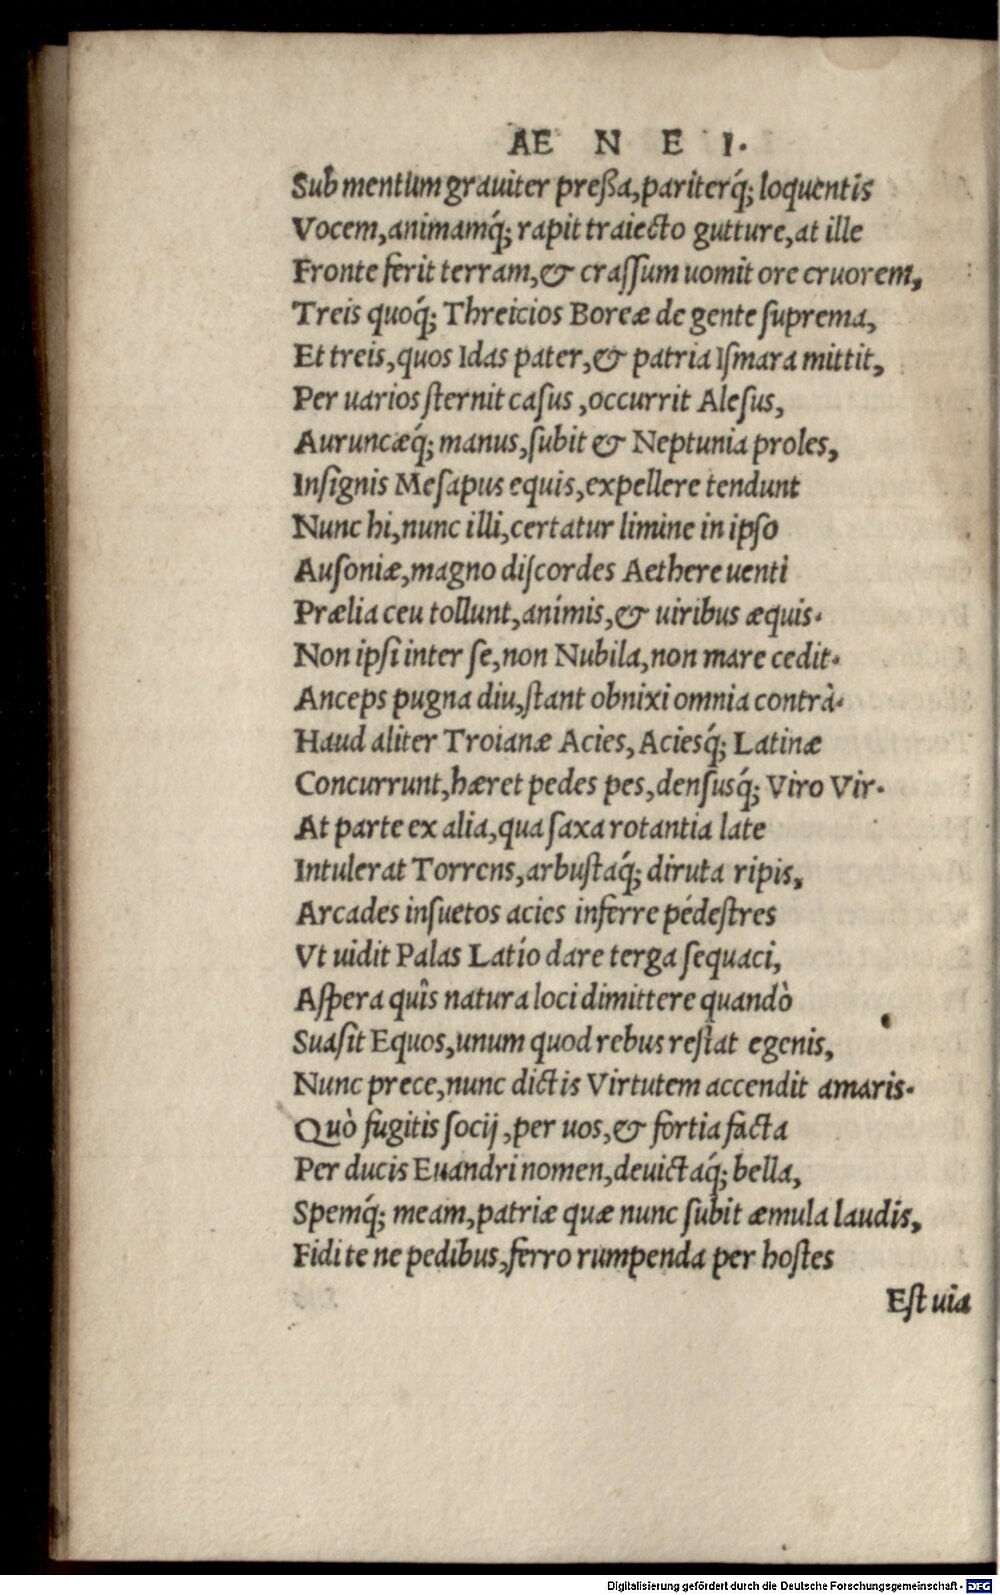 AE N E I.
Sub mentum grauiter preßa,pariterq́; loquentis
Vocem,animamq́; rapit traiecto gutture,at ille
Fronte ferit terram,& craſſum uomit ore cruorem,
Treis quoq́; Threicios Boreæ de gente ſuprema,
Et treis,quos Idas pater,& patria Iſmara mittit,
Per uarios ſternit caſus ,occurrit Aleſus,
Auruncæq́; manus,ſubit & Neptunia proles,
Inſignis Meſapus equis,expellere tendunt
Nunc hi,nunc illi,certatur limine in ipſo
Auſoniæ,magno diſcordes Aethere uenti
Prælia ceu tollunt,animis,& uiribus æquis.
Non ipſi inter ſe,non Nubila,non mare cedit.
Anceps pugna diu,ſtant obnixi omnia contrà.
Haud aliter Troianæ Acies, Aciesq́; Latinæ
Concurrunt,hæret pedes pes,denſusq́; Viro Vir.
At parte ex alia,qua ſaxa rotantia late
Intulerat Torrens,arbuſtaq́; diruta ripis,
Arcades inſuetos acies inferre pédeſtres
Vt uidit Palas Latio dare terga ſequaci,
Aſpera quîs natura loci dimittere quandò
Suaſit Equos,unum quod rebus reſtat egenis,
Nunc prece,nunc dictis Virtutem accendit amaris.
Quò fugitis ſocij,per uos,& fortia facta
Per ducis Euandri nomen,deuictaq́; bella,
Spemq́; meam,patriæ quæ nunc ſubit æmula laudis,
Fidite ne pedibus,ferro rumpenda per hoſtes
Eſt uia
Digitalisierung gefördert durch die Deutsche Forschungsgemeinschaft - DFG